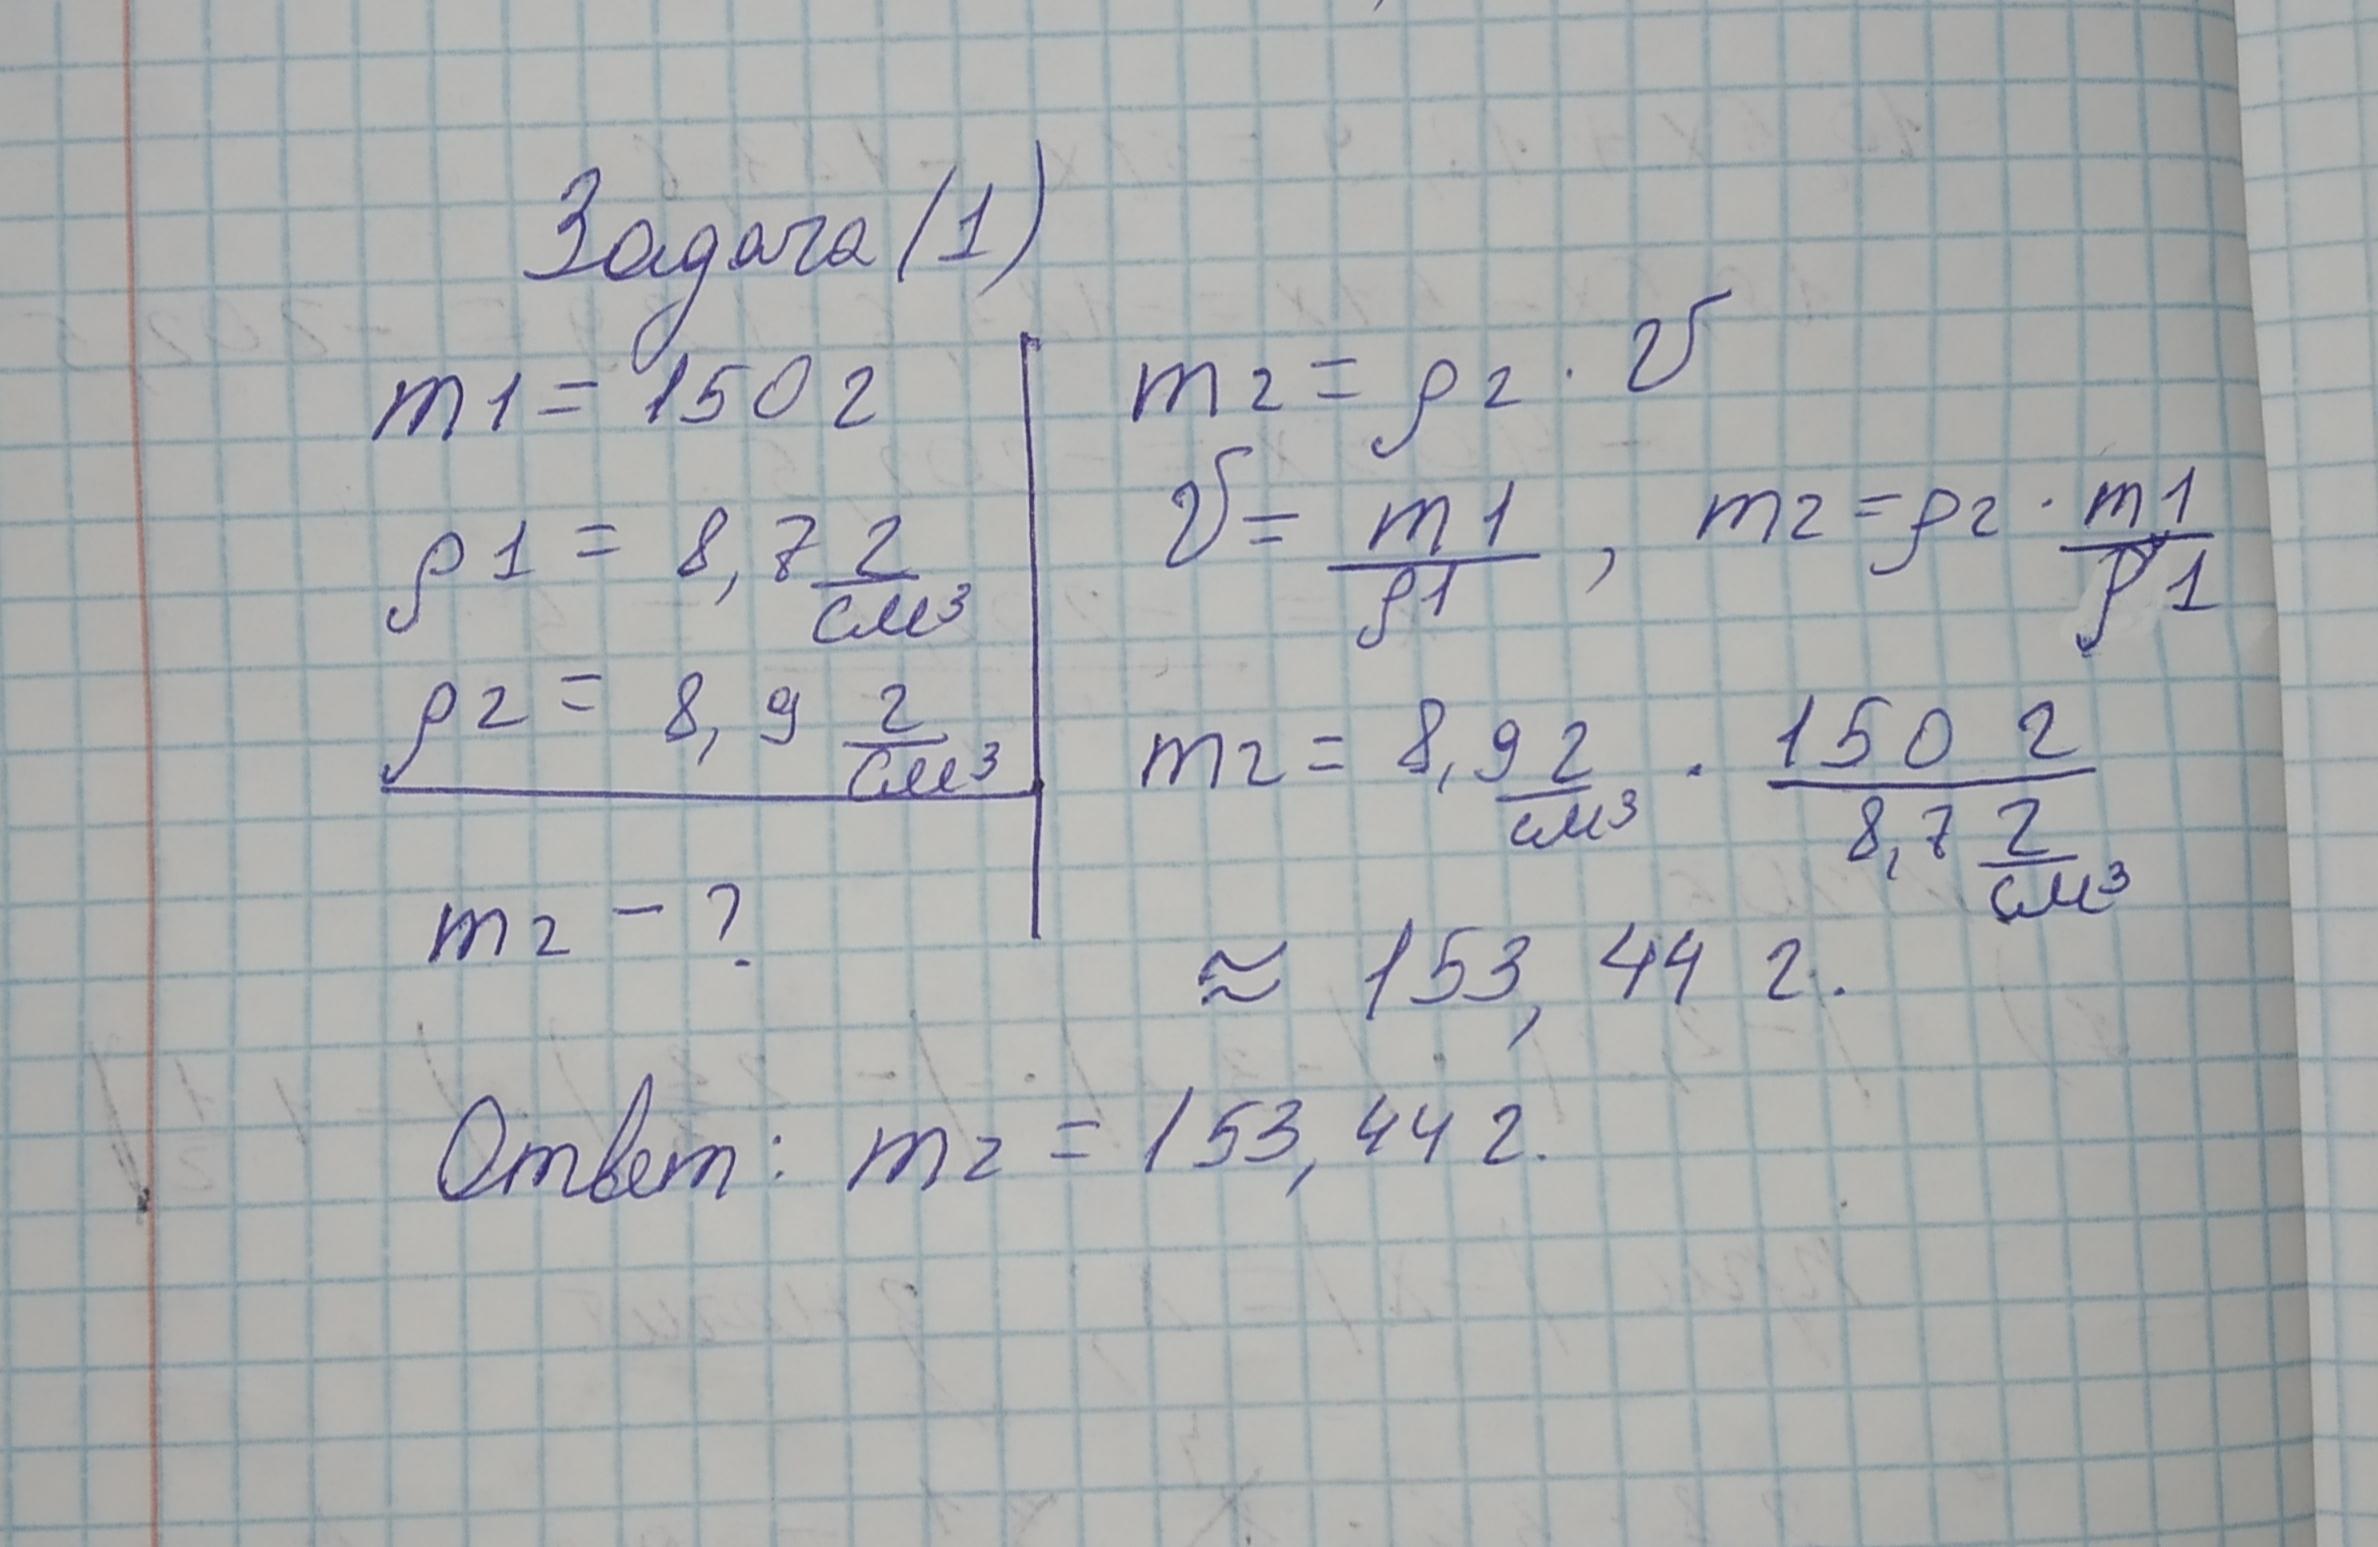 Задача (1)
m1 = 150 г
ρ1 = 8,7 г/см³
ρ2 = 8,9 г/см³
m2 - ?
m2 = ρ2 · V
V = m1/ρ1 , m2 = ρ2 · m1/ρ1
m2 = 8,9 г/см³ · 150 г/8,7 г/см³
≈ 153,44 г.
Ответ: m2 = 153,44 г.